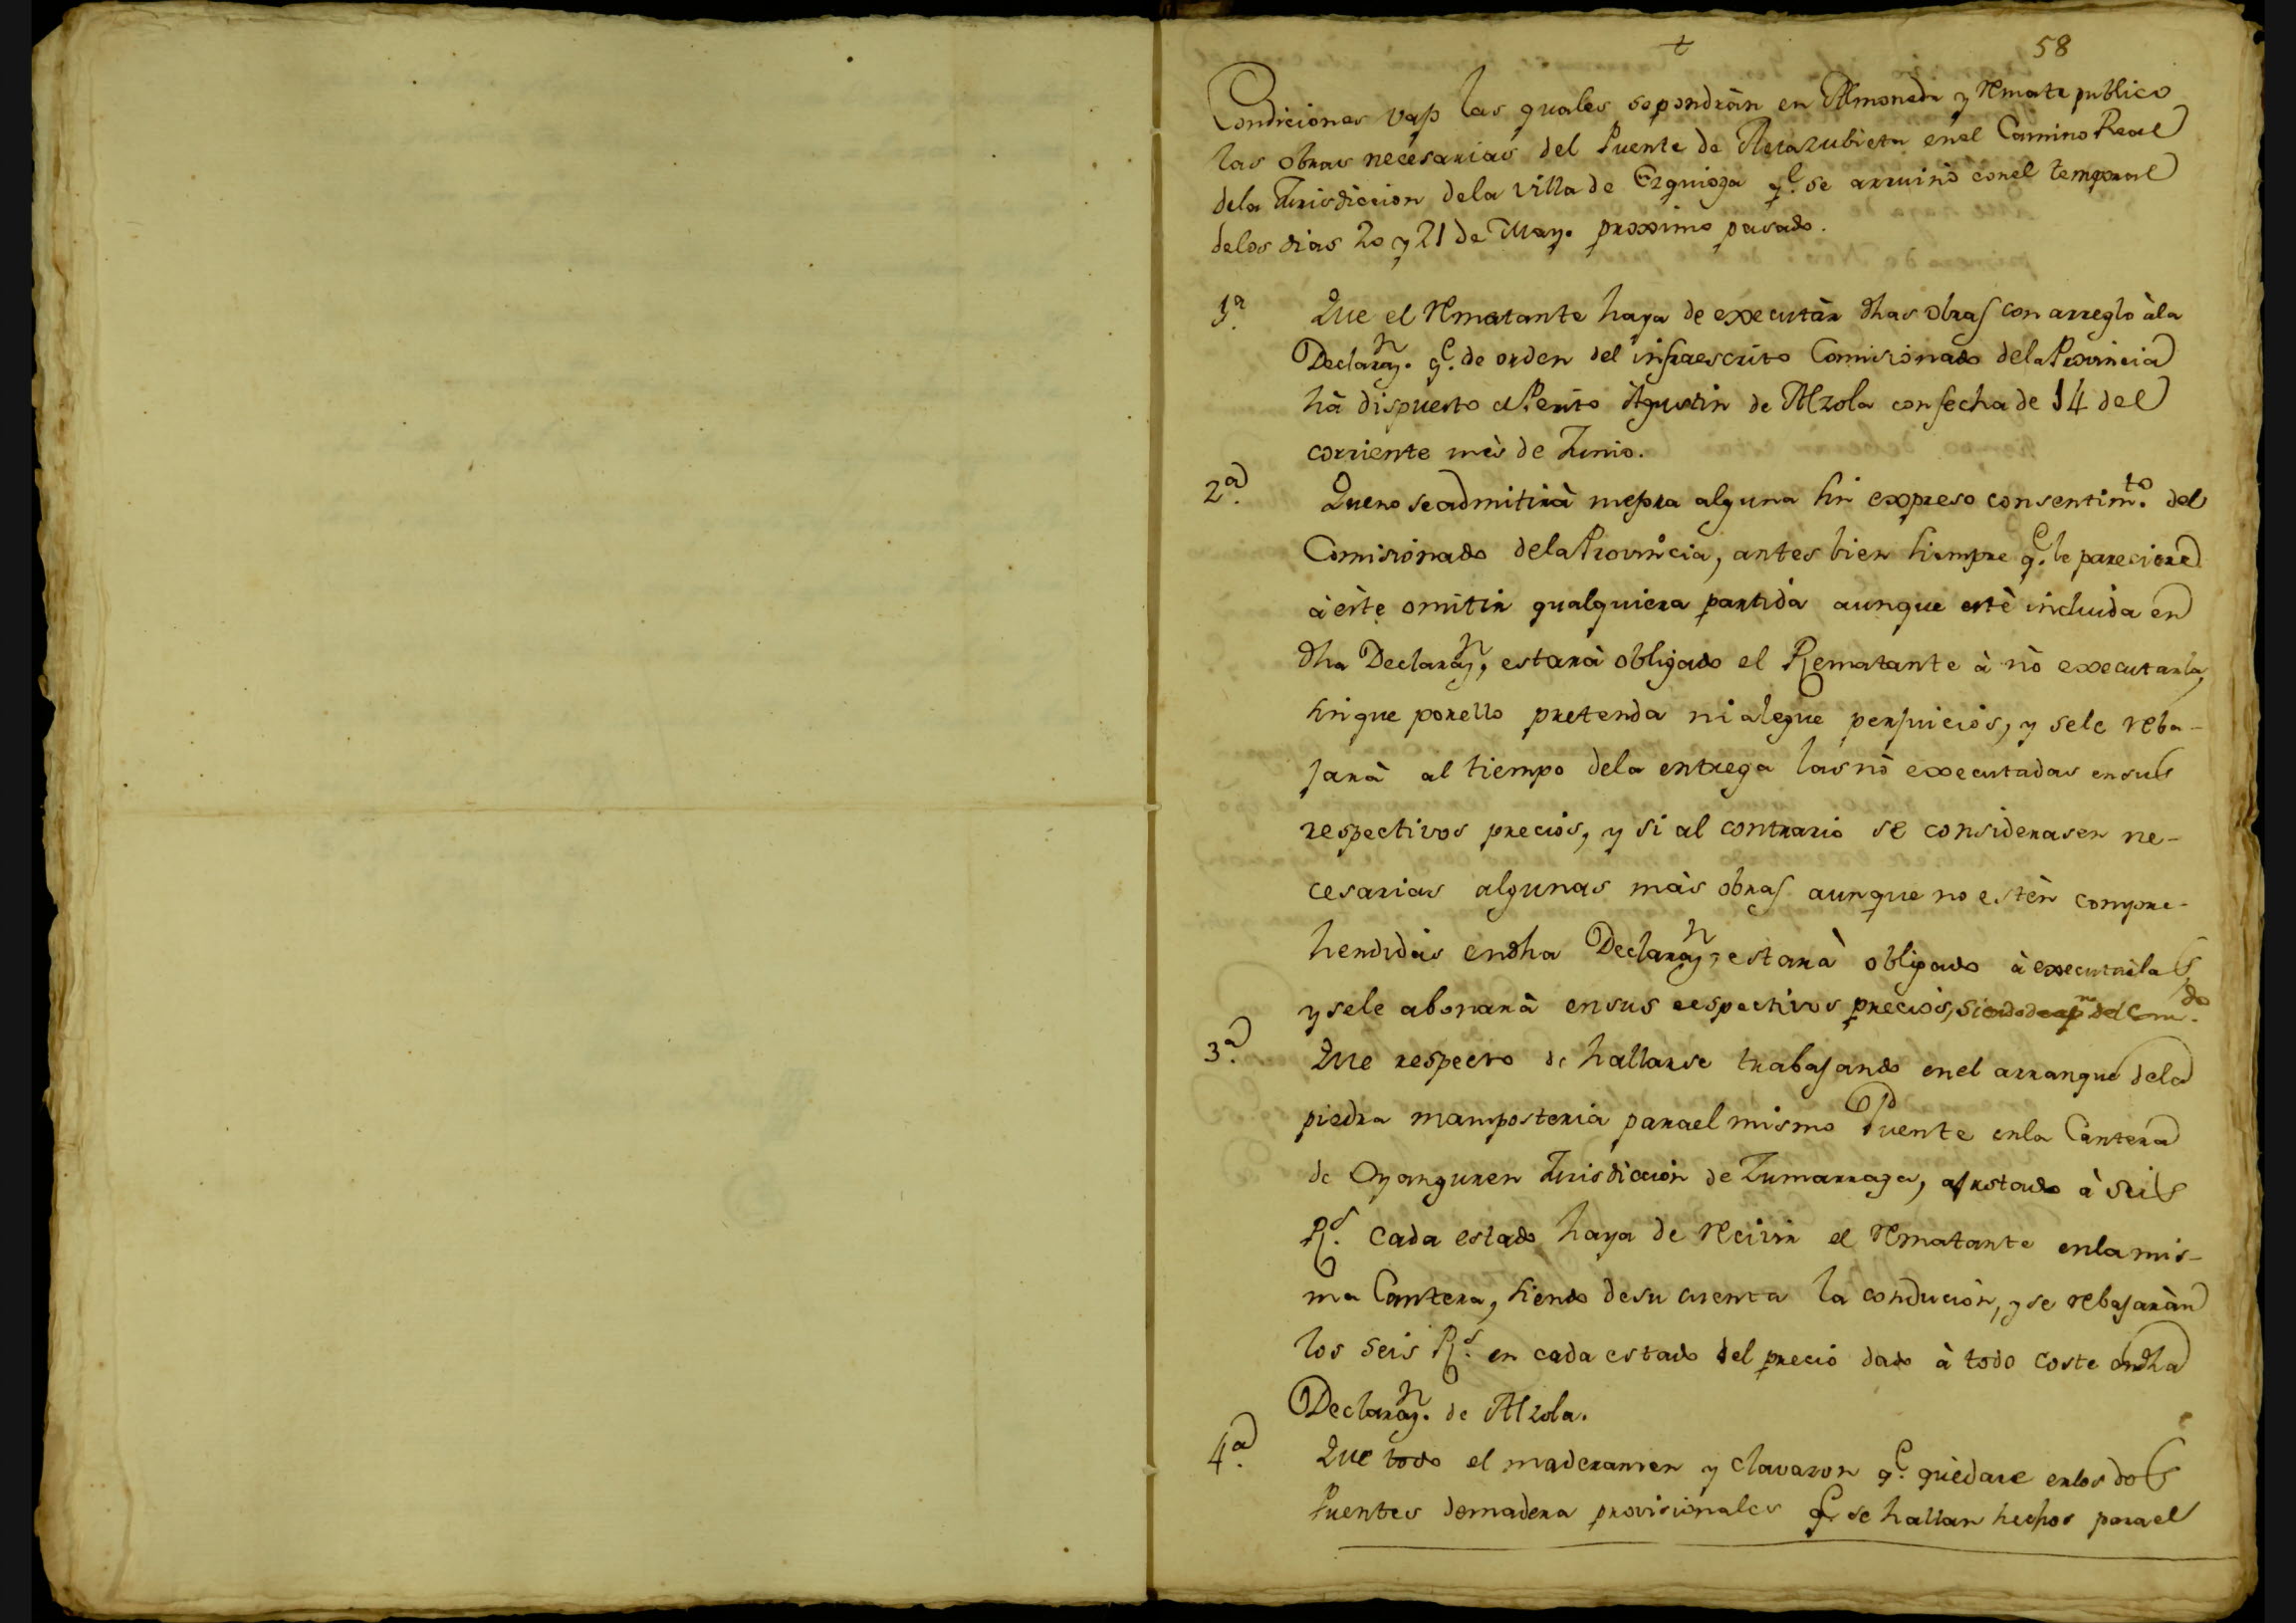 58
Condiciones vajo las quales se pondràn en Almoneda y remate publico
las obras necesarias del Puente de Alcazubieta en el Camino Real
dela Jurisdiccion dela villa de Ezquioga q.e se arruinò conel temporal
delos dias 20 y 21 de Mayo proximo pasado.
1.a Que el rematante haya de executàr dhas obras con arreglo àla
Declaraz.n q.e de orden del infraescrito Comisionado dela Provincia
hà dispuesto el Perito Agustin de Alzola con fecha de 14 del
corriente mès de Junio.
2.a Que no se admitirà mejora alguna sin expreso consentim.to del
Comisionado dela Provincia, antes bien siempre q.e le pareciere
à èste omitir qualquiera partida aunque estè incluida en
dha Declaraz.n, estarà obligado el Rematante à nò executarla,
sin que por ello pretenda ni alegue perjuicios, y sele reba-
jarà al tiempo dela entrega las nò executadas en sus
respectivos precios, y si al contrario se considerasen ne-
cesarias algunas màs obras aunque no estèn compre-
hendidas en dha Declaraz.n, estarà obligado à executarlas
y sele abonarà en sus respectivos precios, siendo de ap.n del Com.do
3.a Que respecto de hallarse trabajando en el arranque dela
piedra mamposteria para el mismo Puente en la Cantera
de Oyanguren Jurisdiccion de Zumarraga, ajustado à seis
R.s cada estado haya de recivir el rematante en la mis-
ma Cantera, siendo de su cuenta la conducion, y se rebajaràn
los seis R.s en cada estado del precio dado à todo coste en dha
Declaraz.n de Alzola.
4.a Que todo el maderamen y clavazon q.e quedare en los dos
Puentes de madera provisionales q.e se hallan hechos para el